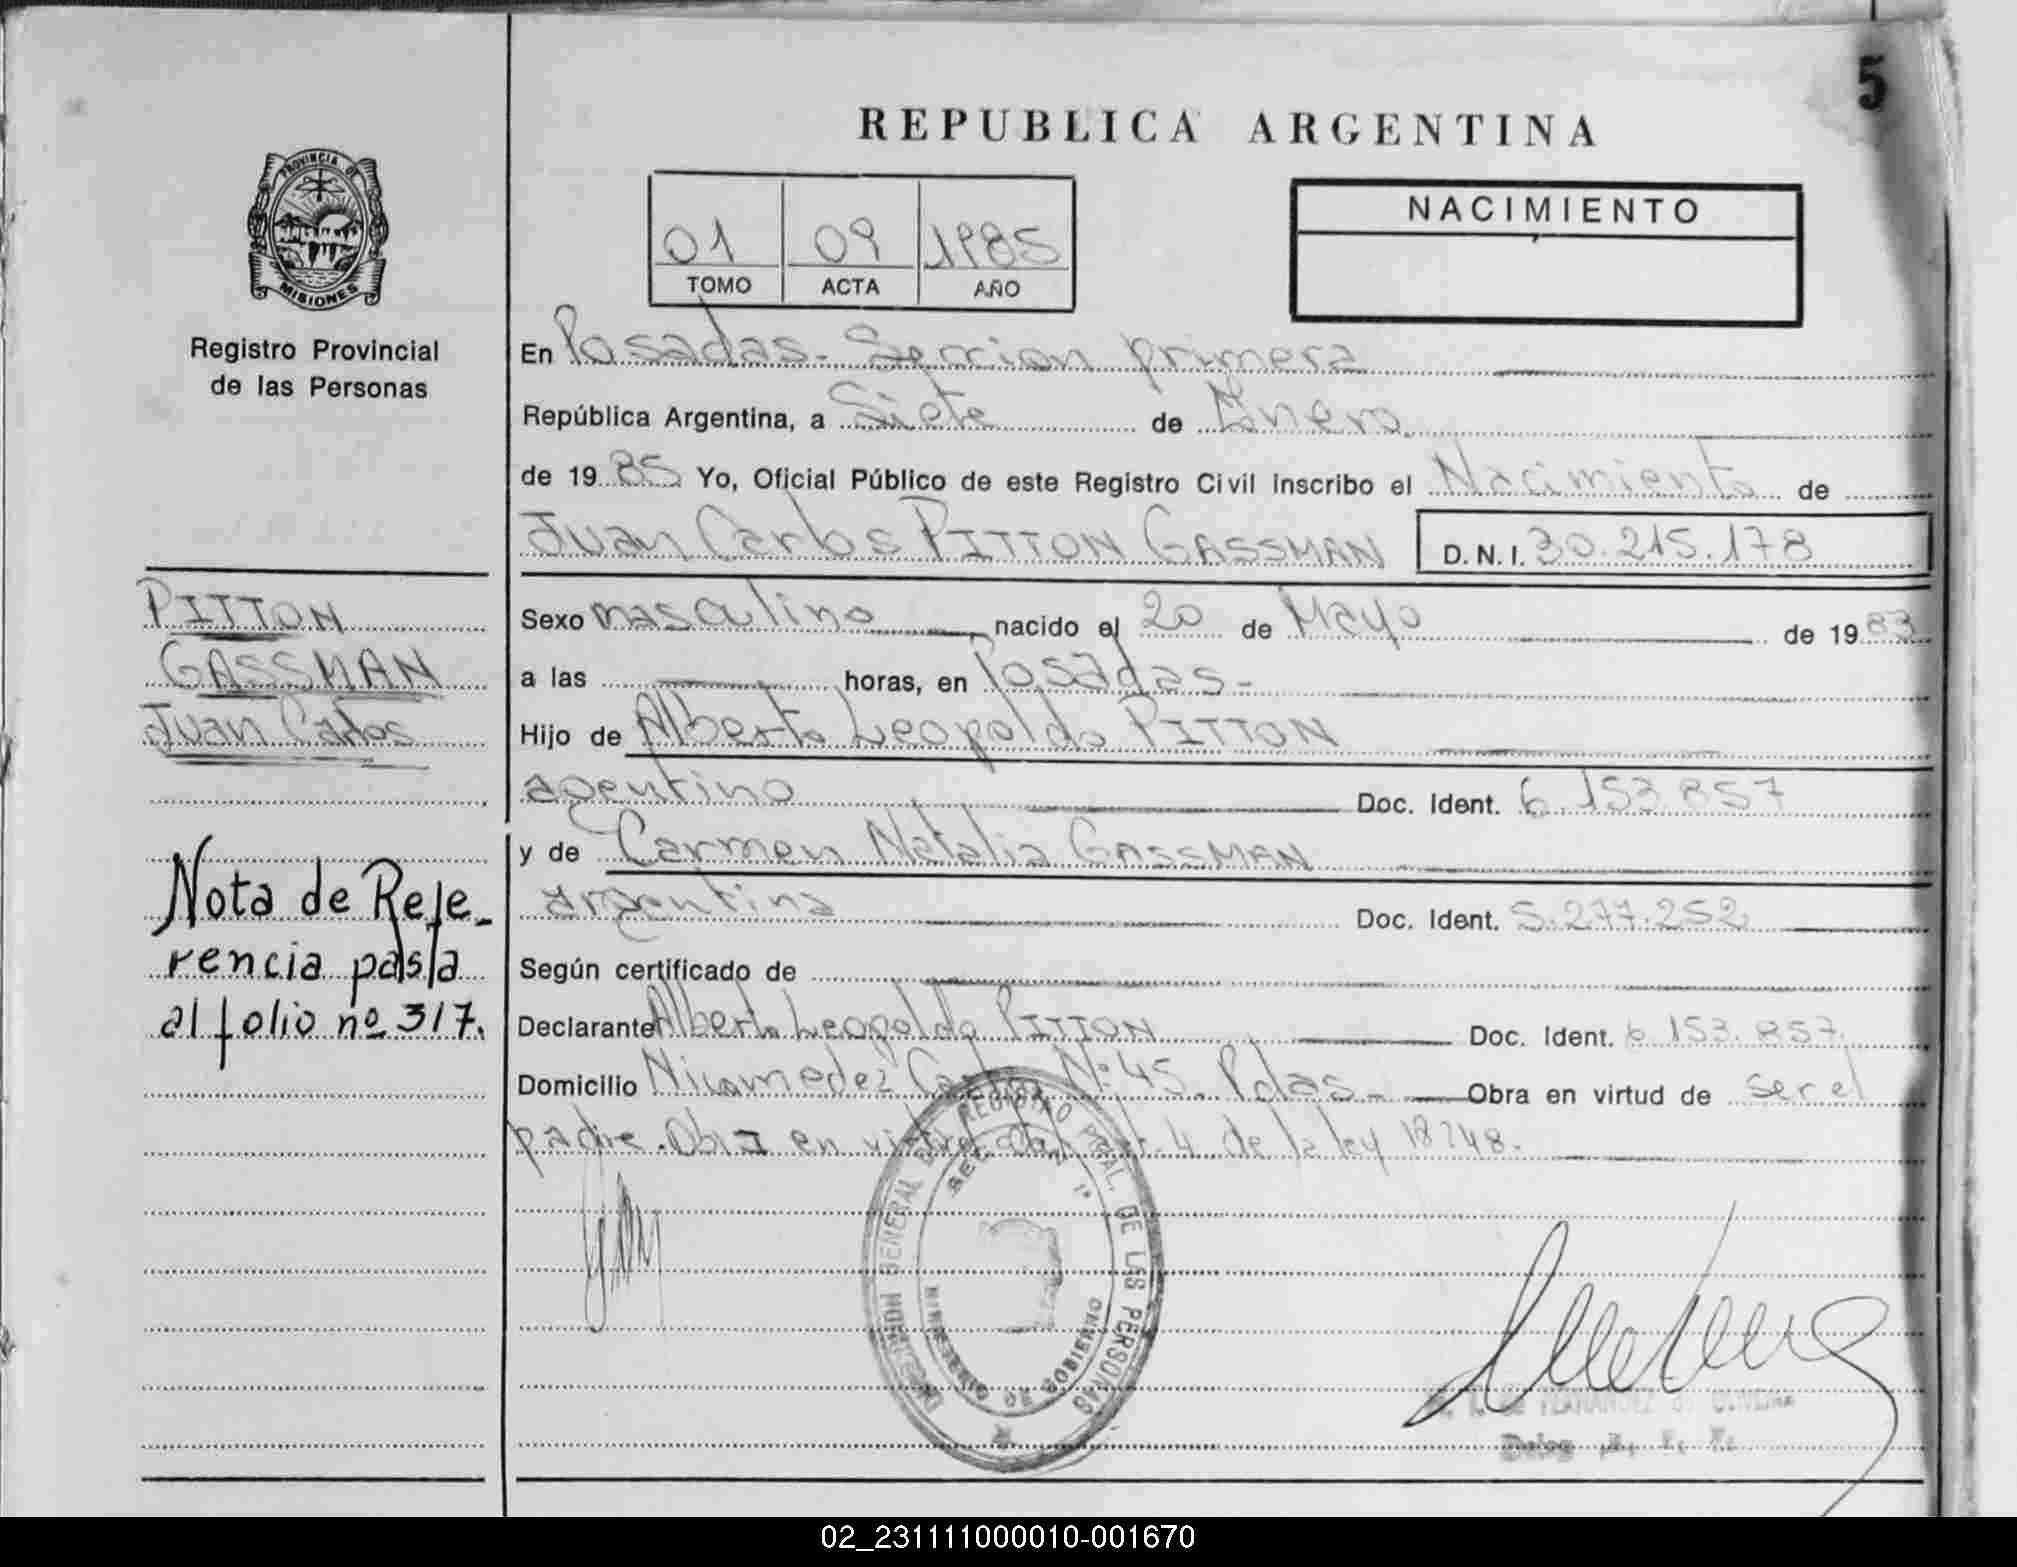 5
REPUBLICA ARGENTINA
PROVINCIA DE
MISIONES
Registro Provincial
de las Personas
01 09 1985
TOMO ACTA AÑO
NACIMIENTO
En Posadas - Seccion primera
República Argentina, a Siete de Enero
de 1985 Yo, Oficial Público de este Registro Civil inscribo el Nacimiento de
Juan Carlos PITTON GASSMAN D. N. I. 30.215.178
PITTON
GASSMAN
Juan Carlos
Sexo masculino nacido el 20 de Mayo de 1983
a las horas, en Posadas -
Hijo de Alberto Leopoldo PITTON
argentino Doc. Ident. 6.153.857
y de Carmen Natalia GASSMAN
argentina Doc. Ident. 5.277.252
Nota de Refe-
rencia pasa
al folio nº 317.
Según certificado de
Declarante Alberto Leopoldo PITTON Doc. Ident. 6.153.857
Domicilio Nicomedez Castro Nº 45. Pdas - Obra en virtud de ser el
padre. Obra en virtud del art. 4 de la ley 18248.
DIRECCION GENERAL DEL REGISTRO PCIAL. DE LAS PERSONAS
SECCION 1ª
MINISTERIO DE GOBIERNO
02_231111000010-001670